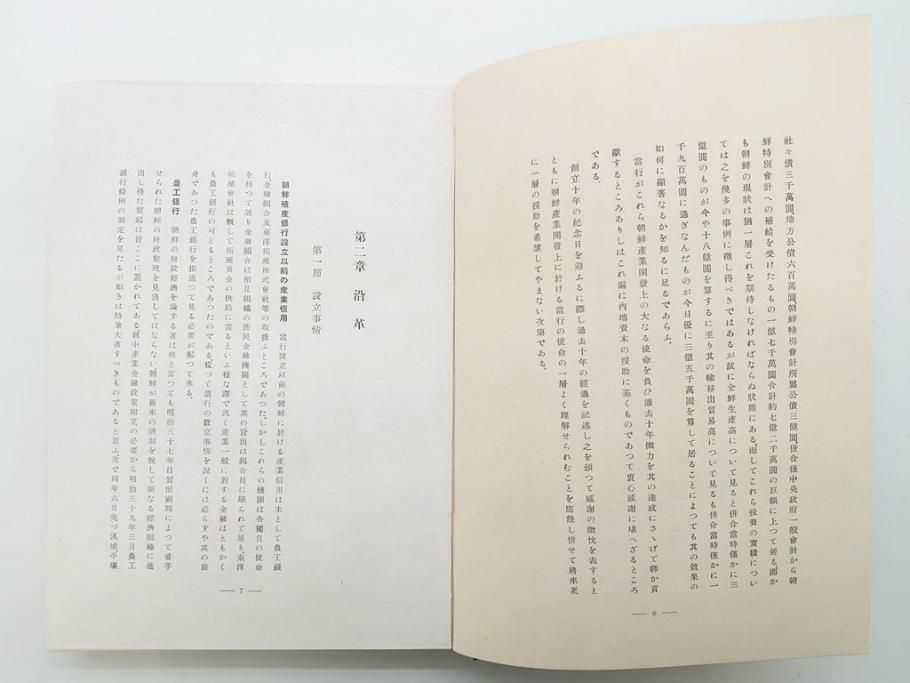 社々債三千萬圓、地方公債六百萬圓、朝鮮特別會計所屬公債三億圓、併合後中央政府一般會計から朝
鮮特別會計への補給を受けたるもの一億七千萬圓合計約七億二千萬圓の巨額に上つて居る。而か
も朝鮮の現狀は猶一層これを期待しなければならぬ狀態にある。而してこれら投資の實績につい
ては之を幾多の事例に徴し得べきではあるが試に全鮮生產高について見ると併合當時僅かに三
億圓のものが今や十八億圓を算するに至り其の輸移出貿易高について見るも併合當時僅かに一
千九百萬圓に過ぎなんだものが今日優に三億五千萬圓を算して居ることによつても其の效果の
如何に顯著なるかを知るに足るであらふ。
當行がこれら朝鮮產業開發上の大なる使命を負ひ過去十年微力を其の達成にさゝげて聊か貢
獻するところありしはこれ偏に內地資本の援助に基くものであつて衷心感謝に堪へざるところ
である。
創立十年の紀念日を迎ふるに際し過去十年の經過を記述し之を頒つて感謝の微忱を表すると
ともに朝鮮產業開發上に於ける當行の使命の一層よく理解せられむことを庶幾し併せて將來更
に一層の援助を希望してやまない次第である。
— 6 —
第二章 沿革
第一節 設立事情
朝鮮殖產銀行設立以前の產業信用 當行設立以前の朝鮮に於ける產業信用は主として農工銀
行、金融組合及東洋拓殖株式會社等の取扱ふところであつた。しかしこれらの機關は各獨自の使命
を持つて居り金融組合は相互組織の庶民金融機關として其の貸出は組合員に限られて居り、東洋
拓殖會社は槪して拓殖資金の供給に當るといふ樣な譯で汎く產業一般に對する金融はともかく
も農工銀行の司どるところであつたのである。從つて當行の設立事情を說くには必らずや其の前
身であつた農工銀行を振返つて見る必要が起つて來る。
農工銀行 朝鮮の財政經濟を論ずる者は何と言つても明治三十七年目賀田顧問によつて着手
せられた朝鮮の財政整理を見逃してはならない。朝鮮が舊來の陋制を脫して新なる經濟組織に進
出し得た契起は皆こゝに置かれてある。就中產業金融政策樹立の必要から明治三十九年三月農工
銀行條例の制定を見たるが如きは特筆大書すべきものであると思ふ。次で同年六月先づ漢城、平壤
— 7 —